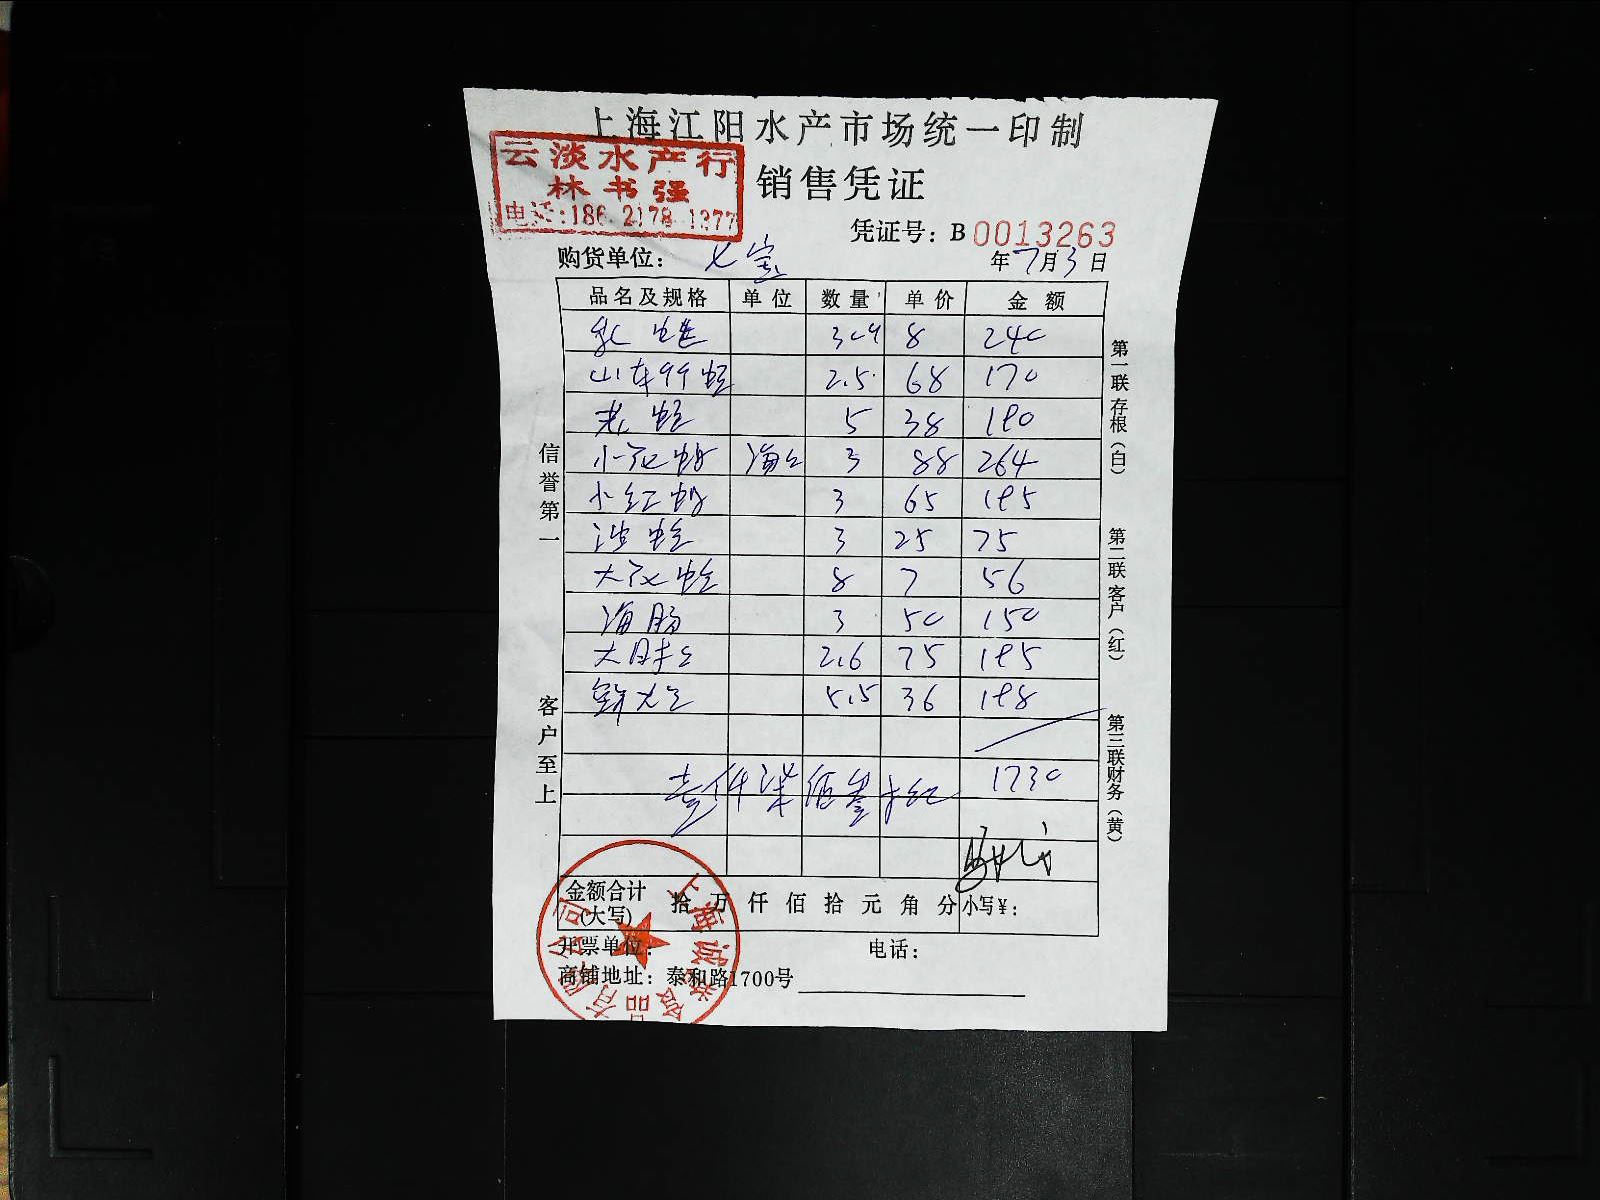 上海江阳水产市场统一印制
云淡水产行
林书强
电话:186 2178 1377
销售凭证
凭证号: B 0013263
购货单位: 七宝
年 7月3日
品名及规格 单位 数量 单价 金额
8 240
山东 2.5 68 170
5 38 190
小花蛤 3 88 264
小红蛤 3 65 195
3 25 75
大 8 7 56
海肠 3 50 150
大 2.6 75 195
5.5 36 198
1730
壹仟柒佰叁拾
金额合计
(大写)
拾 万 仟 佰 拾 元 角 分 小写¥:
开票单位: 电话:
商铺地址: 泰和路1700号
信誉第一
客户至上
第一联 存根(白)
第二联 客户(红)
第三联 财务(黄)